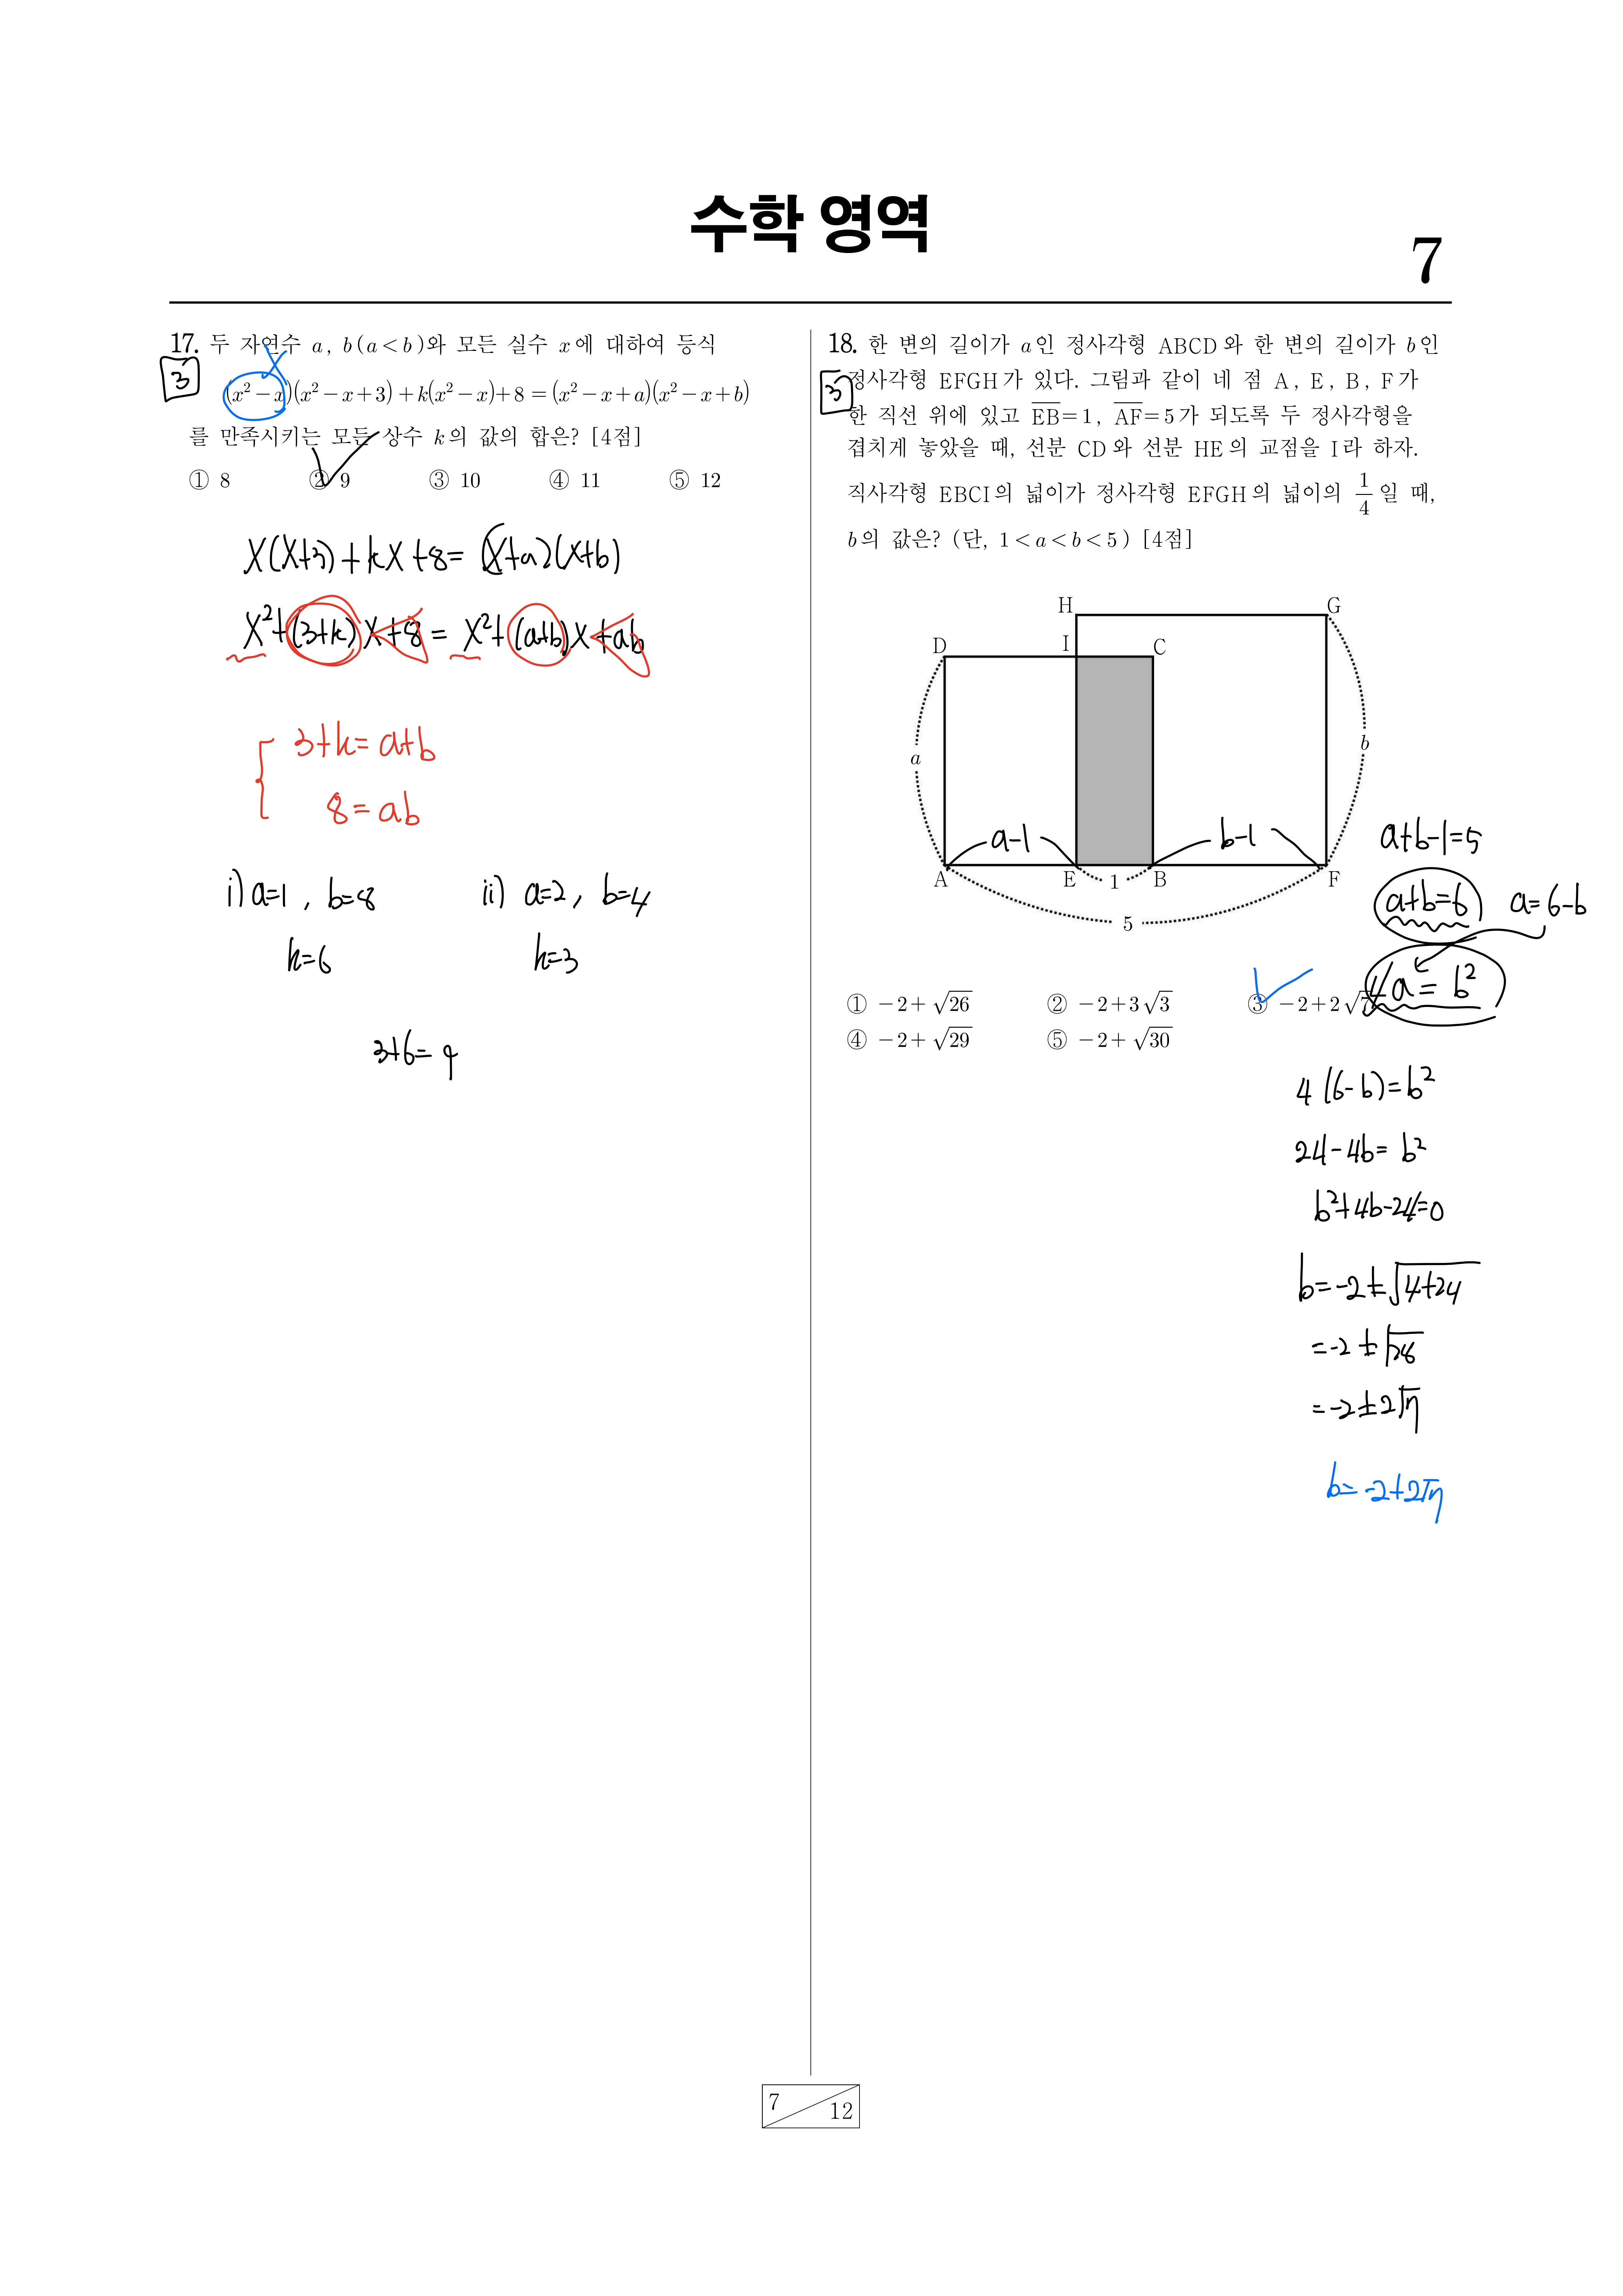 수학 영역
7
17. 두 자연수 a, b(a<b)와 모든 실수 x에 대하여 등식
3
X
(x²-x)(x²-x+3)+k(x²-x)+8=(x²-x+a)(x²-x+b)
를 만족시키는 모든 상수 k의 값의 합은? [4점]
① 8 ② 9 ③ 10 ④ 11 ⑤ 12
X(X+3)+kX+8=(X+a)(X+b)
X²+(3+k)X+8=X²+(a+b)X+ab
3+k=a+b
8=ab
i) a=1, b=8 ii) a=2, b=4
k=6 k=3
3+6=9
18. 한 변의 길이가 a인 정사각형 ABCD와 한 변의 길이가 b인
정사각형 EFGH가 있다. 그림과 같이 네 점 A, E, B, F가
한 직선 위에 있고 EB=1, AF=5가 되도록 두 정사각형을
겹치게 놓았을 때, 선분 CD와 선분 HE의 교점을 I라 하자.
직사각형 EBCI의 넓이가 정사각형 EFGH의 넓이의 1/4일 때,
b의 값은? (단, 1<a<b<5) [4점]
H G
D I C
a b
a-1 b-1
A E 1 B F
5
a+b-1=5
a+b=6 a=6-b
4a=b²
① -2+√26 ② -2+3√3 ③ -2+2√7
④ -2+√29 ⑤ -2+√30
4(6-b)=b²
24-4b=b²
b²+4b-24=0
b=-2±√4+24
=-2±√28
=-2±2√7
b=-2+2√7
7 12